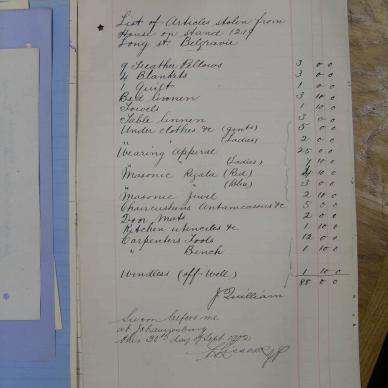 List of Articles stolen from
House on stand 1219
Long st. Belgravie
9 Feather Pillows 3 0 0
4 Blankets 2 0 0
1 Quilt 1 0 0
Bed linnen 3 10 0
Towels 1 10 0
Table linnen 3 0 0
Under clothes &c (gents) 5 0 0
" " (Ladies) 2 0 0
Wearing Apperal 25 0 0
" " (Ladies) 7 10 0
Masonic Regala (Red) 10 0
" " (Blue) 3 0 0
Masonic Jewel 2 10 0
Chaircushens Antamacassus &c 5 0 0
Door Mats 2 0 0
Kitchen utenciles &c 1 10 0
Carpenters Tools 12 0 0
" Bench 1 10 0
Windless (off Well) 1 10 0
88 0 0
J Quilliam
Sworn before me
at Johannesburg
this 30th day of Sept 1902